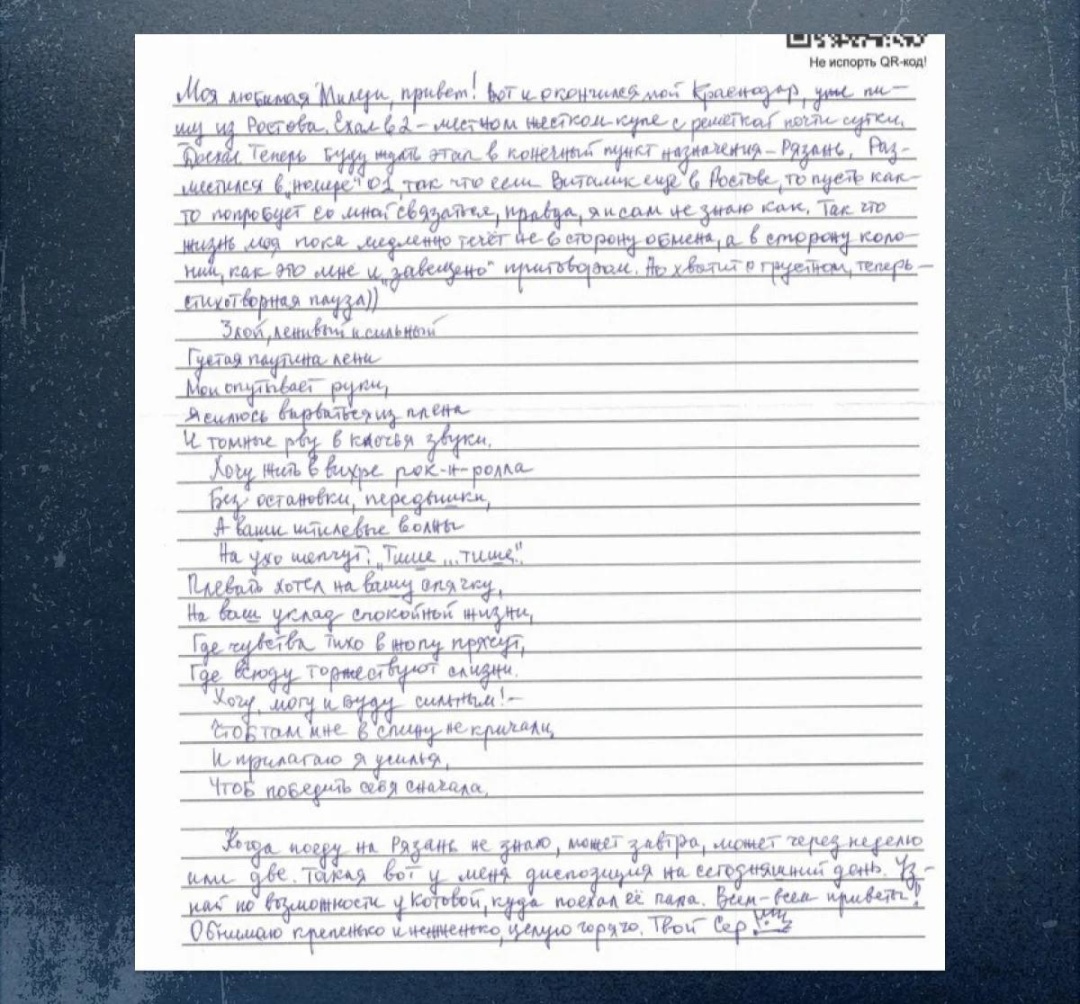 Не испорть QR-код!
Моя любимая Милуи, привет! Вот и окончился мой Краснодар, уже пи-
шу из Ростова. Ехал в 2-местном жестком купе с решёткой почти сутки.
Доехал. Теперь буду ждать этап в конечный пункт назначения - Рязань. Раз-
местился в "номере" 01, так что если Виталик ещё в Ростове, то пусть как-
то попробует со мной связаться, правда, я и сам не знаю как. Так что
жизнь моя пока медленно течёт не в сторону обмена, а в сторону коло-
нии, как это мне и "завещано" приговором. Но хватит о грустном, теперь -
стихотворная пауза))
Злой, ленивый и сильный
Густая паутина лени
Мои опутывает руки,
Я силюсь вырваться из плена
И томные рву в клочья звуки.
Хочу жить в вихре рок-н-ролла
Без остановки, передышки,
А ваши штилевые волны
На ухо шепчут: "Тише ... тише".
Плевать хотел на вашу спячку,
На ваш уклад спокойной жизни,
Где чувства тихо в жопу прячут,
Где всюду торжествуют слизни.
Хочу, могу и буду сильным! -
Чтоб там мне в спину не кричали,
И прилагаю я усилья,
Чтоб победить себя сначала.
Когда поеду на Рязань не знаю, может завтра, может через неделю
или две. Такая вот у меня диспозиция на сегодняшний день. Уз-
най по возможности у Котовой, куда поехал её папа. Всем-всем приветы!
Обнимаю крепенько и нежненько, целую горячо. Твой Сер